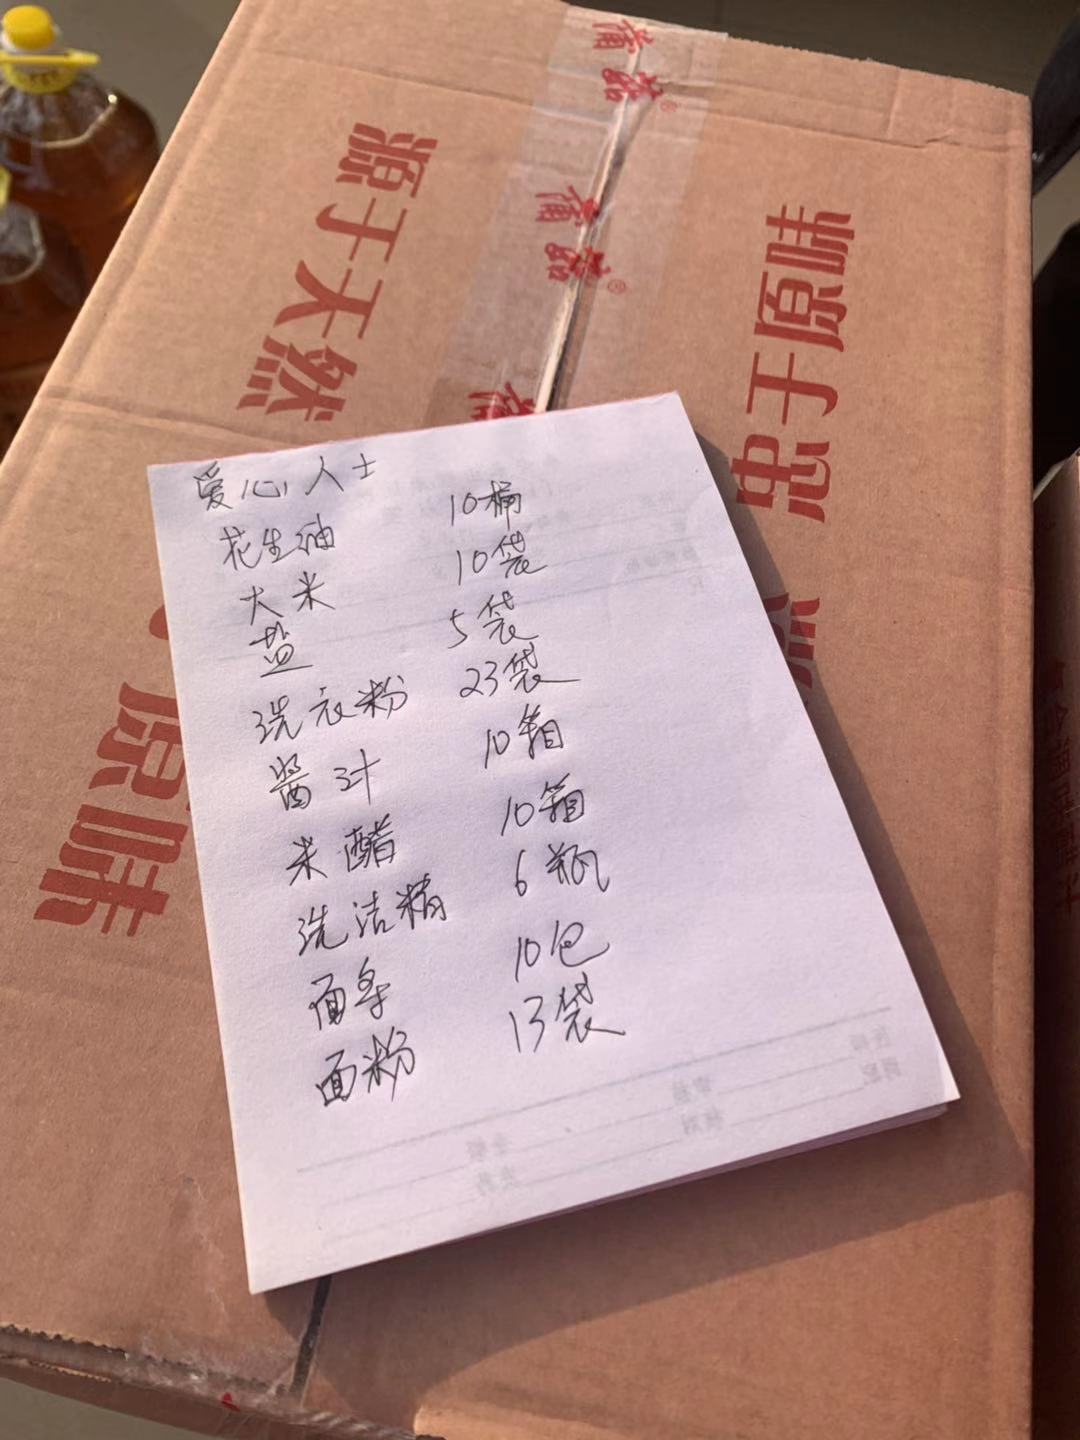 蒲议
蒲议
蒲
源于天然
忠于原味
爱心人士
花生油 10桶
大米 10袋
盐 5袋
洗衣粉 23袋
酱汁 10箱
米醋 10箱
洗洁精 6瓶
面条 10包
面粉 13袋
原味